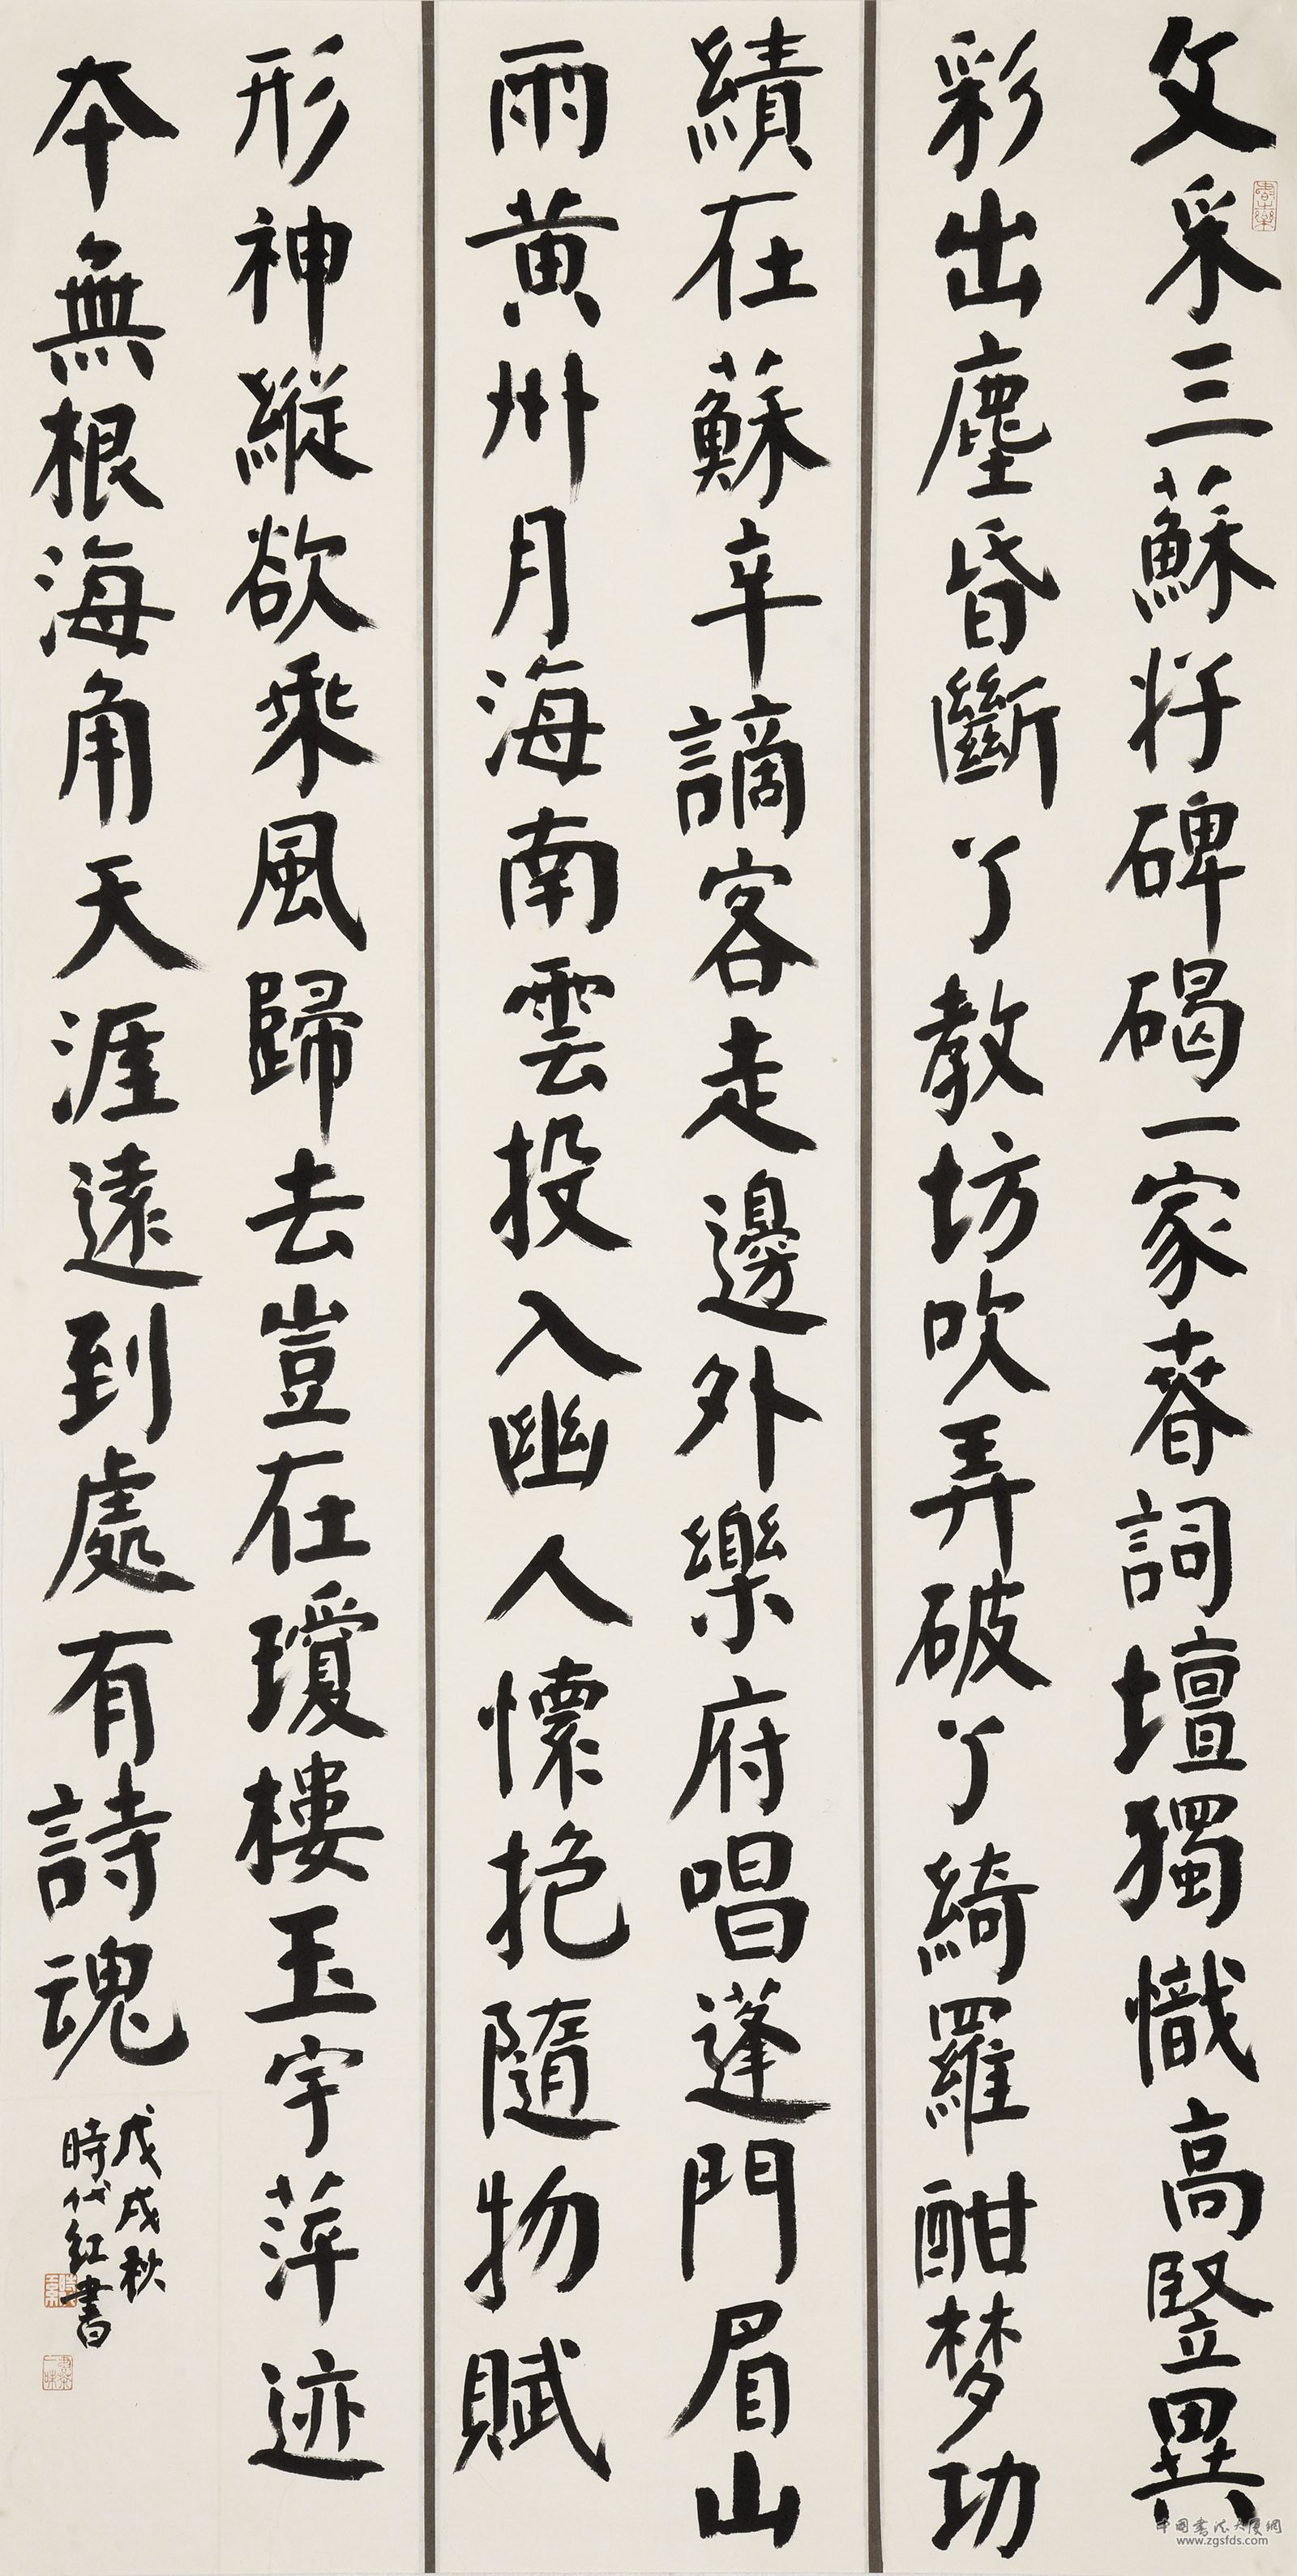 文采三蘇將碑碣一家春詞壇獨幟高豎異
彩出塵昏斷了教坊吹弄破了綺羅酣梦功
績在蘇辛謫客走邊外樂府唱蓬門眉山
雨黄州月海南雲投入幽人懷抱隨物賦
形神縱欲乘風歸去豈在瓊樓玉宇萍迹
本無根海角天涯遠到處有詩魂
戊戌秋
時代紅書
中國書法大厦網
www.zgsfds.com